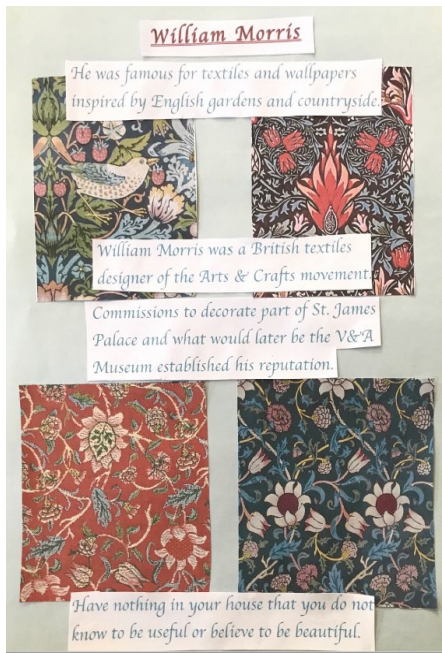 William Morris
He was famous for textiles and wallpapers
inspired by English gardens and countryside.
William Morris was a British textiles
designer of the Arts & Crafts movement.
Commissions to decorate part of St. James
Palace and what would later be the V&A
Museum established his reputation.
Have nothing in your house that you do not
know to be useful or believe to be beautiful.